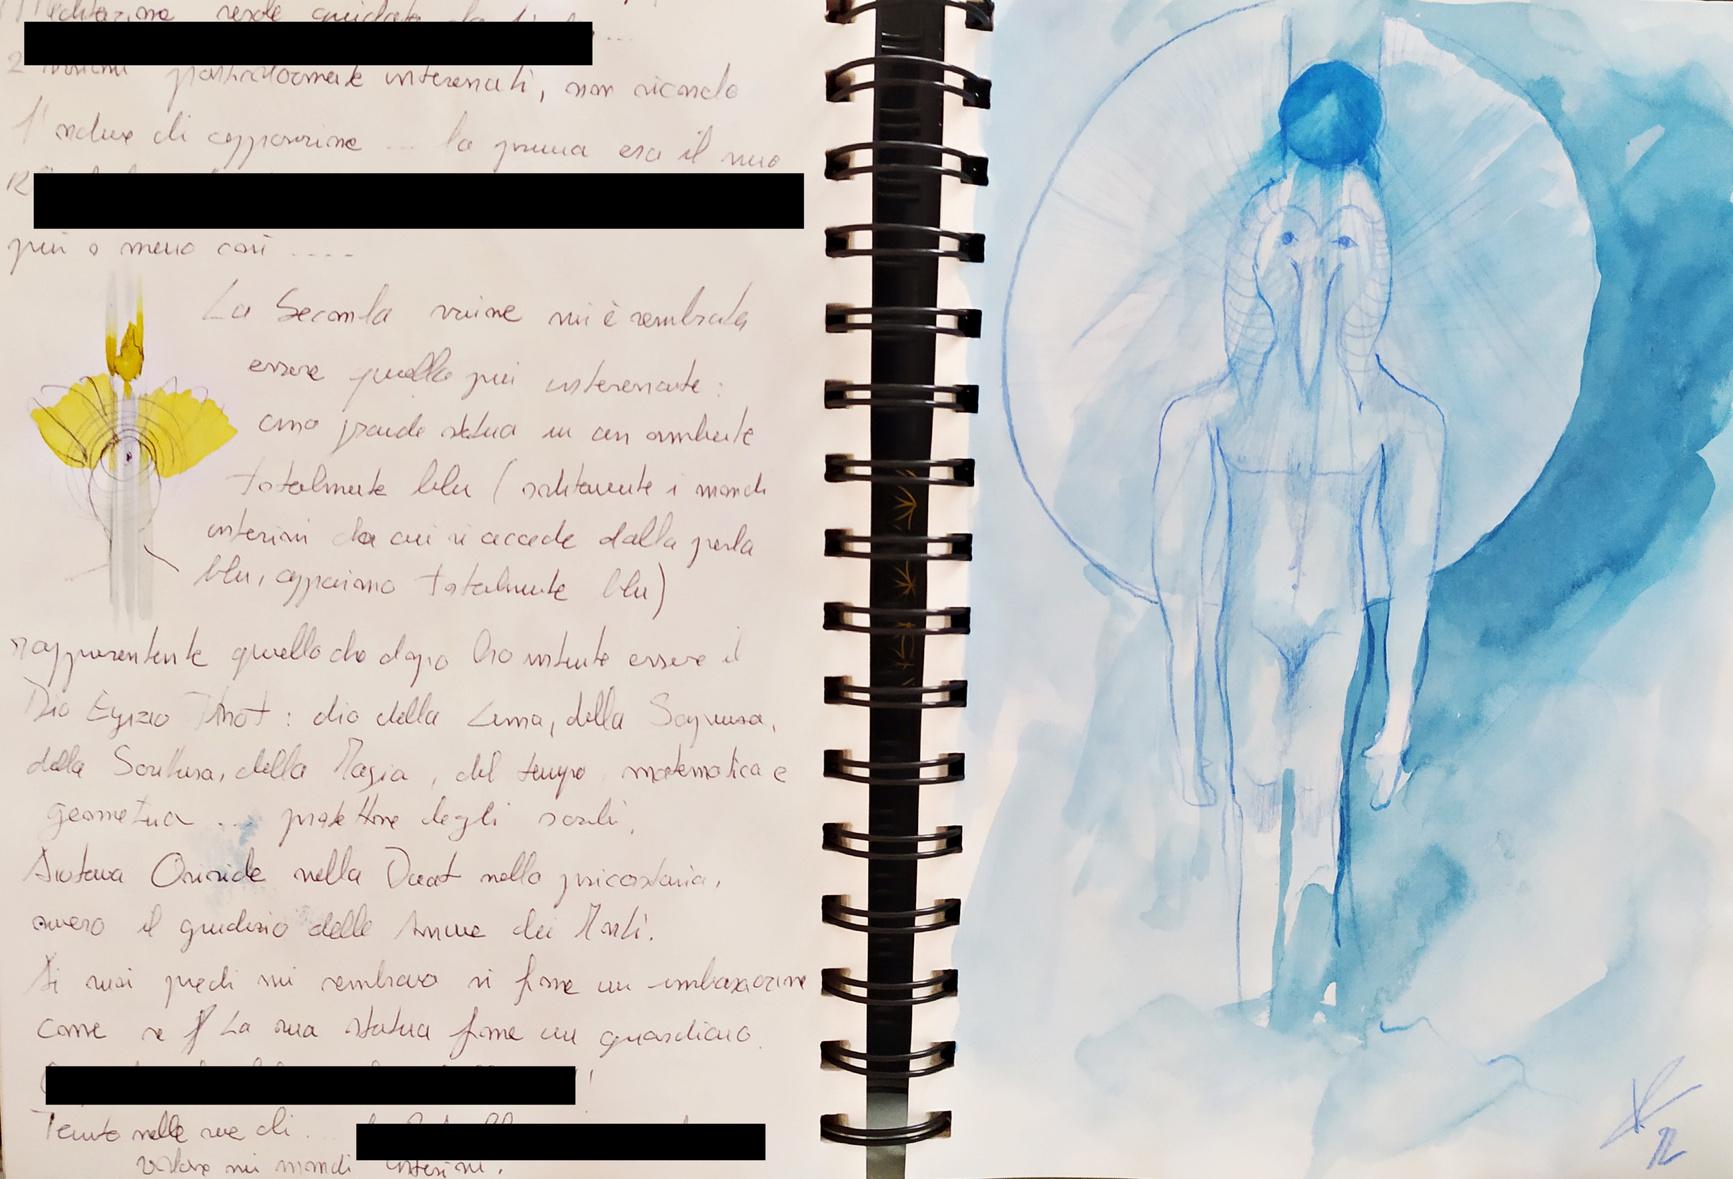 Meditazione serale guidata da
2 visioni particolarmente interessanti, non ricordo
l'ordine di apparizione ... la prima era il mio
più o meno così ....
La Seconda visione mi è sembrata
essere quella più interessante:
una grande statua in un ambiente
totalmente blu (solitamente i mondi
interiori da cui si accede dalla perla
blu, appaiono totalmente blu)
rappresentante quello che dopo ho intuito essere il
Dio Egizio Thot: dio della Luna, della Sapienza,
della Scrittura, della Magia, del tempo, matematica e
geometria ... protettore degli scribi.
Aiutava Osiride nella Duat nella psicostasia,
ovvero il giudizio delle Anime dei Morti.
Ai suoi piedi mi sembrava vi fosse un'imbarcazione
come se La sua statua fosse un guardiano.
!
Tenuto nelle sue di ...
volare nei mondi interiori.